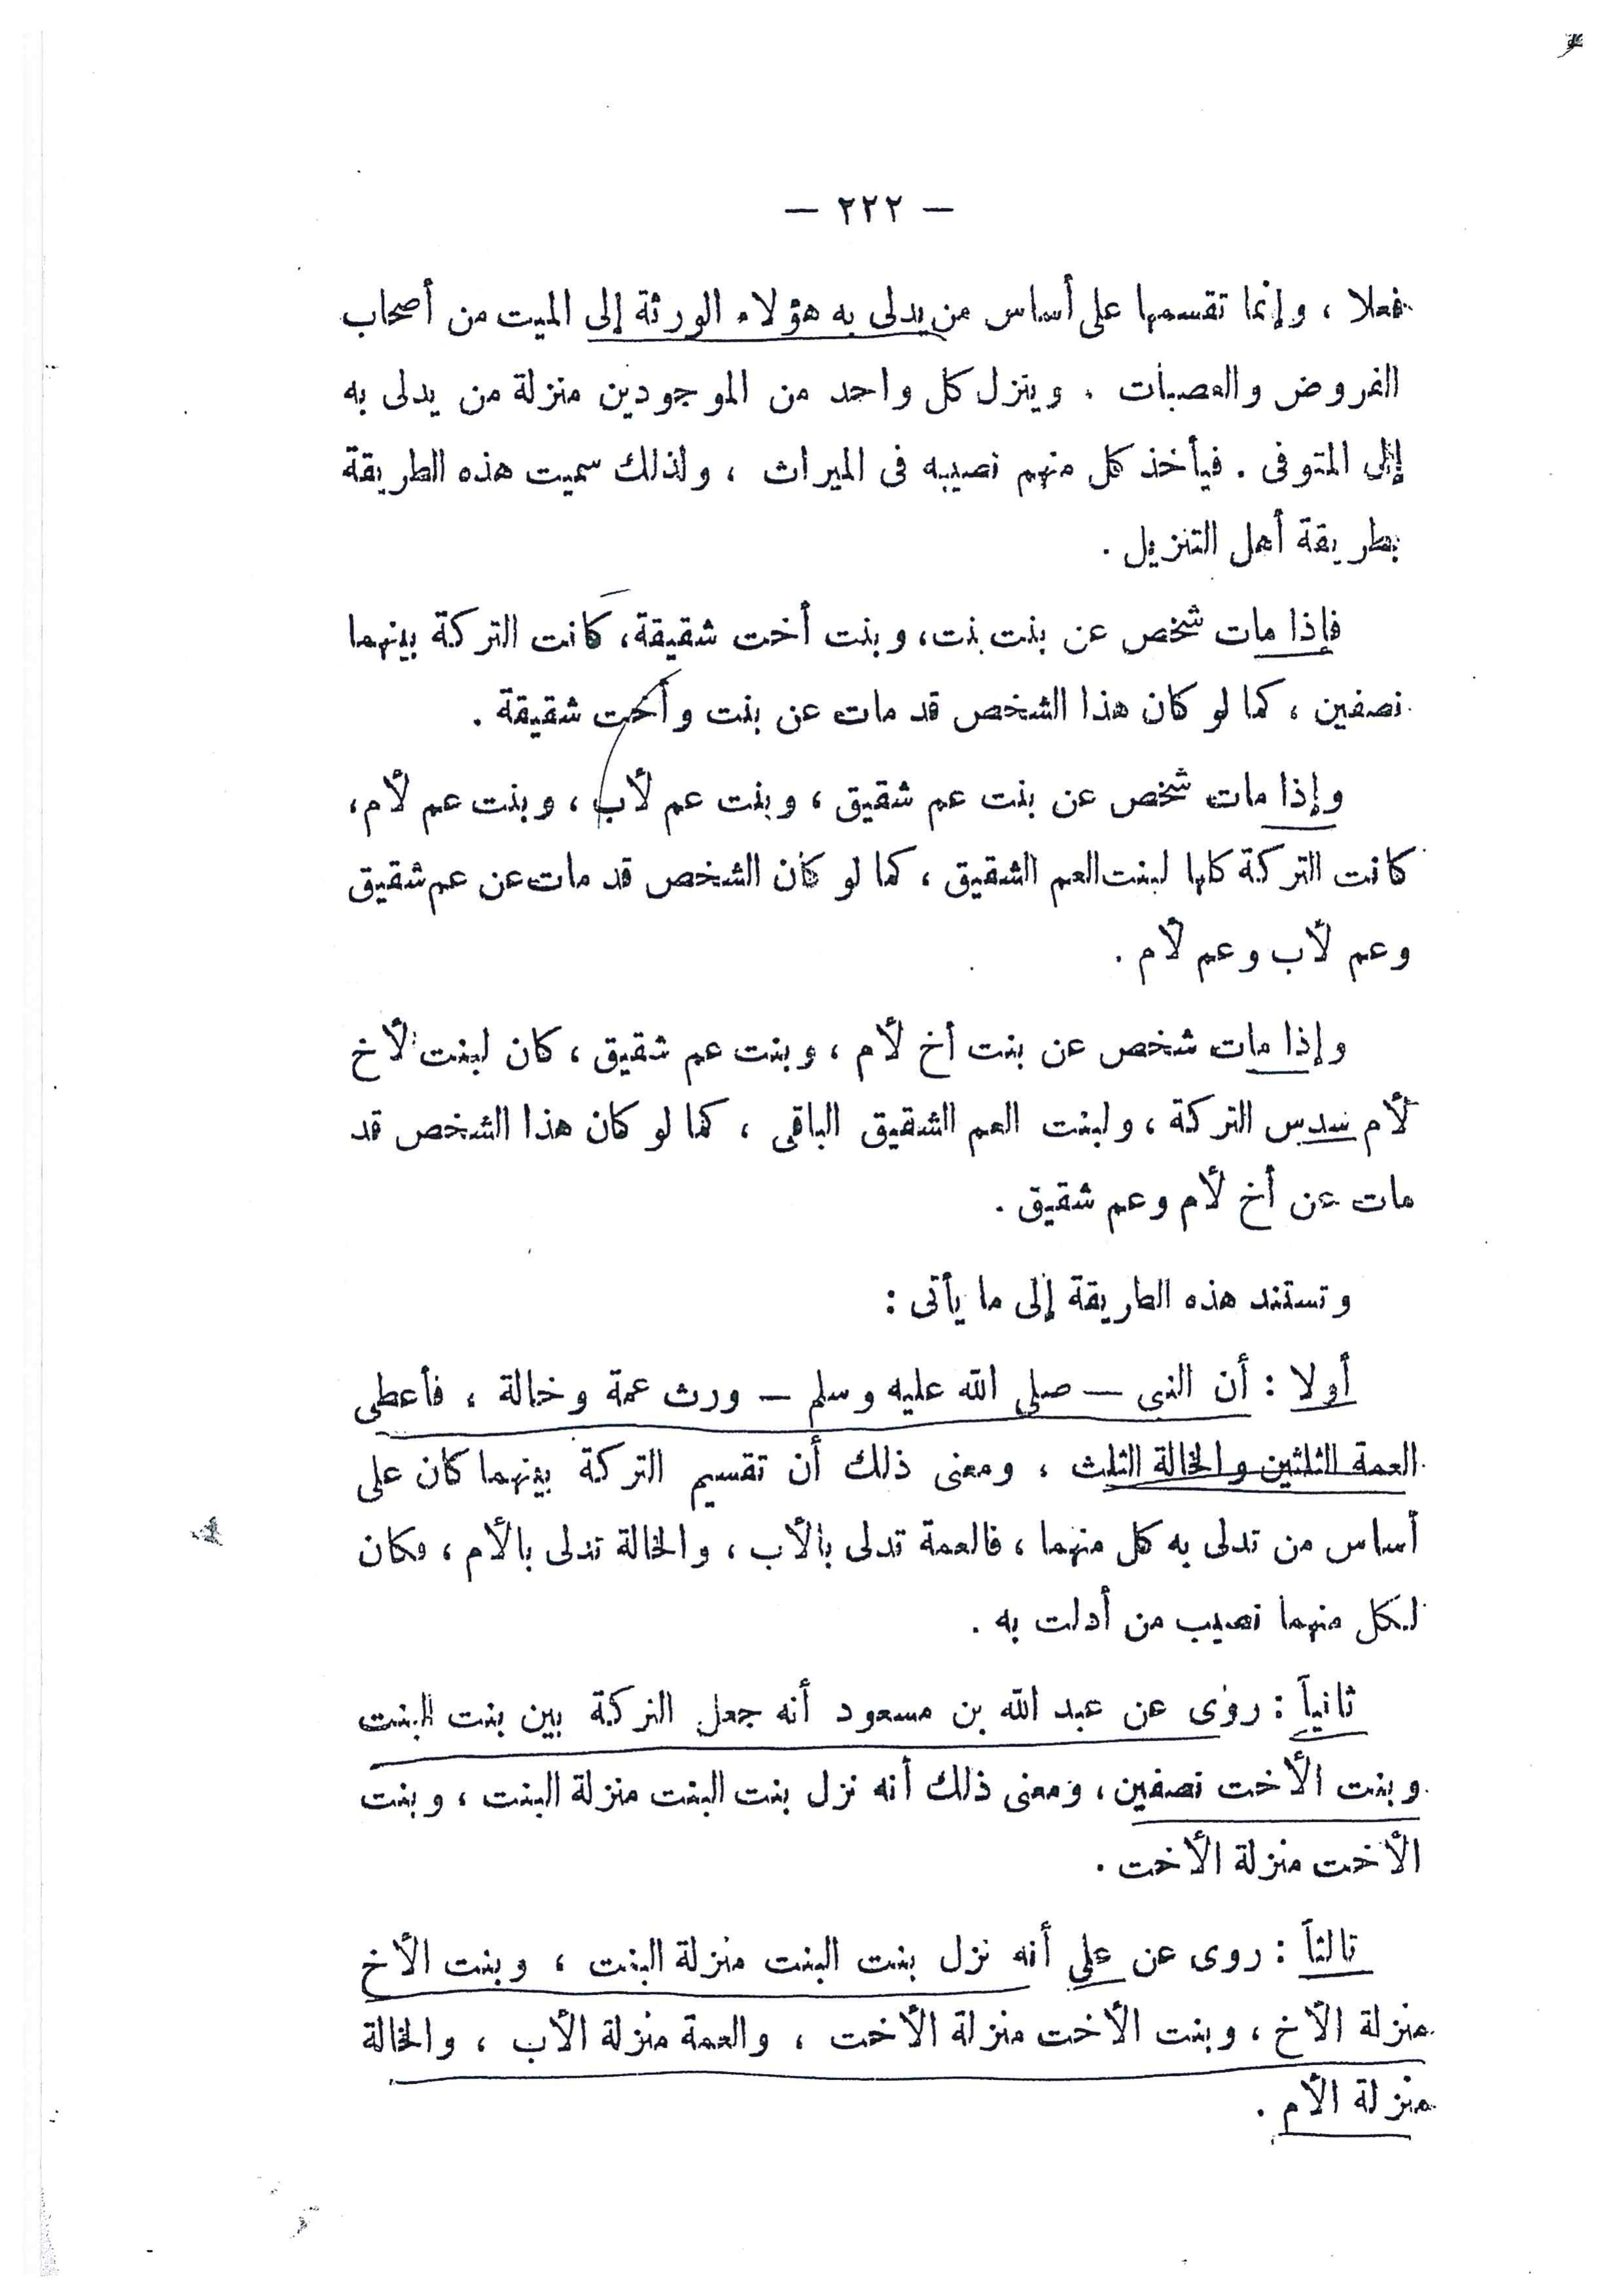 — ٢٢٢ —
فعلا ، وإنما تقسمها على أساس من يدلى به هؤلاء الورثة إلى الميت من أصحاب
الفروض والعصبات . وينزل كل واحد من الموجودين منزلة من يدلى به
إلى المتوفى . فيأخذ كل منهم نصيبه فى الميراث ، ولذلك سميت هذه الطريقة
بطريقة أهل التنزيل .
فإذا مات شخص عن بنت بنت، وبنت أخت شقيقة، كانت التركة بينهما
نصفين ، كما لو كان هذا الشخص قد مات عن بنت وأخت شقيقة .
وإذا مات شخص عن بنت عم شقيق ، وبنت عم لأب ، وبنت عم لأم،
كانت التركة كلها لبنت العم الشقيق ، كما لو كان الشخص قد مات عن عم شقيق
وعم لأب وعم لأم .
وإذا مات شخص عن بنت أخ لأم ، وبنت عم شقيق ، كان لبنت لأخ
لأم سدس التركة ، ولبنت العم الشقيق الباقى ، كما لو كان هذا الشخص قد
مات عن أخ لأم وعم شقيق .
وتستند هذه الطريقة إلى ما يأتى :
أولا : أن النبى — صلى الله عليه وسلم — ورث عمة وخالة ، فأعطى
العمة الثلثين والخالة الثلث ، ومعنى ذلك أن تقسيم التركة بينهما كان على
أساس من تدلى به كل منهما ، فالعمة تدلى بالأب ، والخالة تدلى بالأم ، فكان
لكل منهما نصيب من أدلت به .
ثانياً : روى عن عبد الله بن مسعود أنه جعل التركة بين بنت البنت
وبنت الأخت نصفين ، ومعنى ذلك أنه نزل بنت البنت منزلة البنت ، وبنت
الأخت منزلة الأخت .
ثالثاً : روى عن على أنه نزل بنت البنت منزلة البنت ، وبنت الأخ
منزلة الأخ ، وبنت الأخت منزلة الأخت ، والعمة منزلة الأب ، والخالة
منزلة الأم .